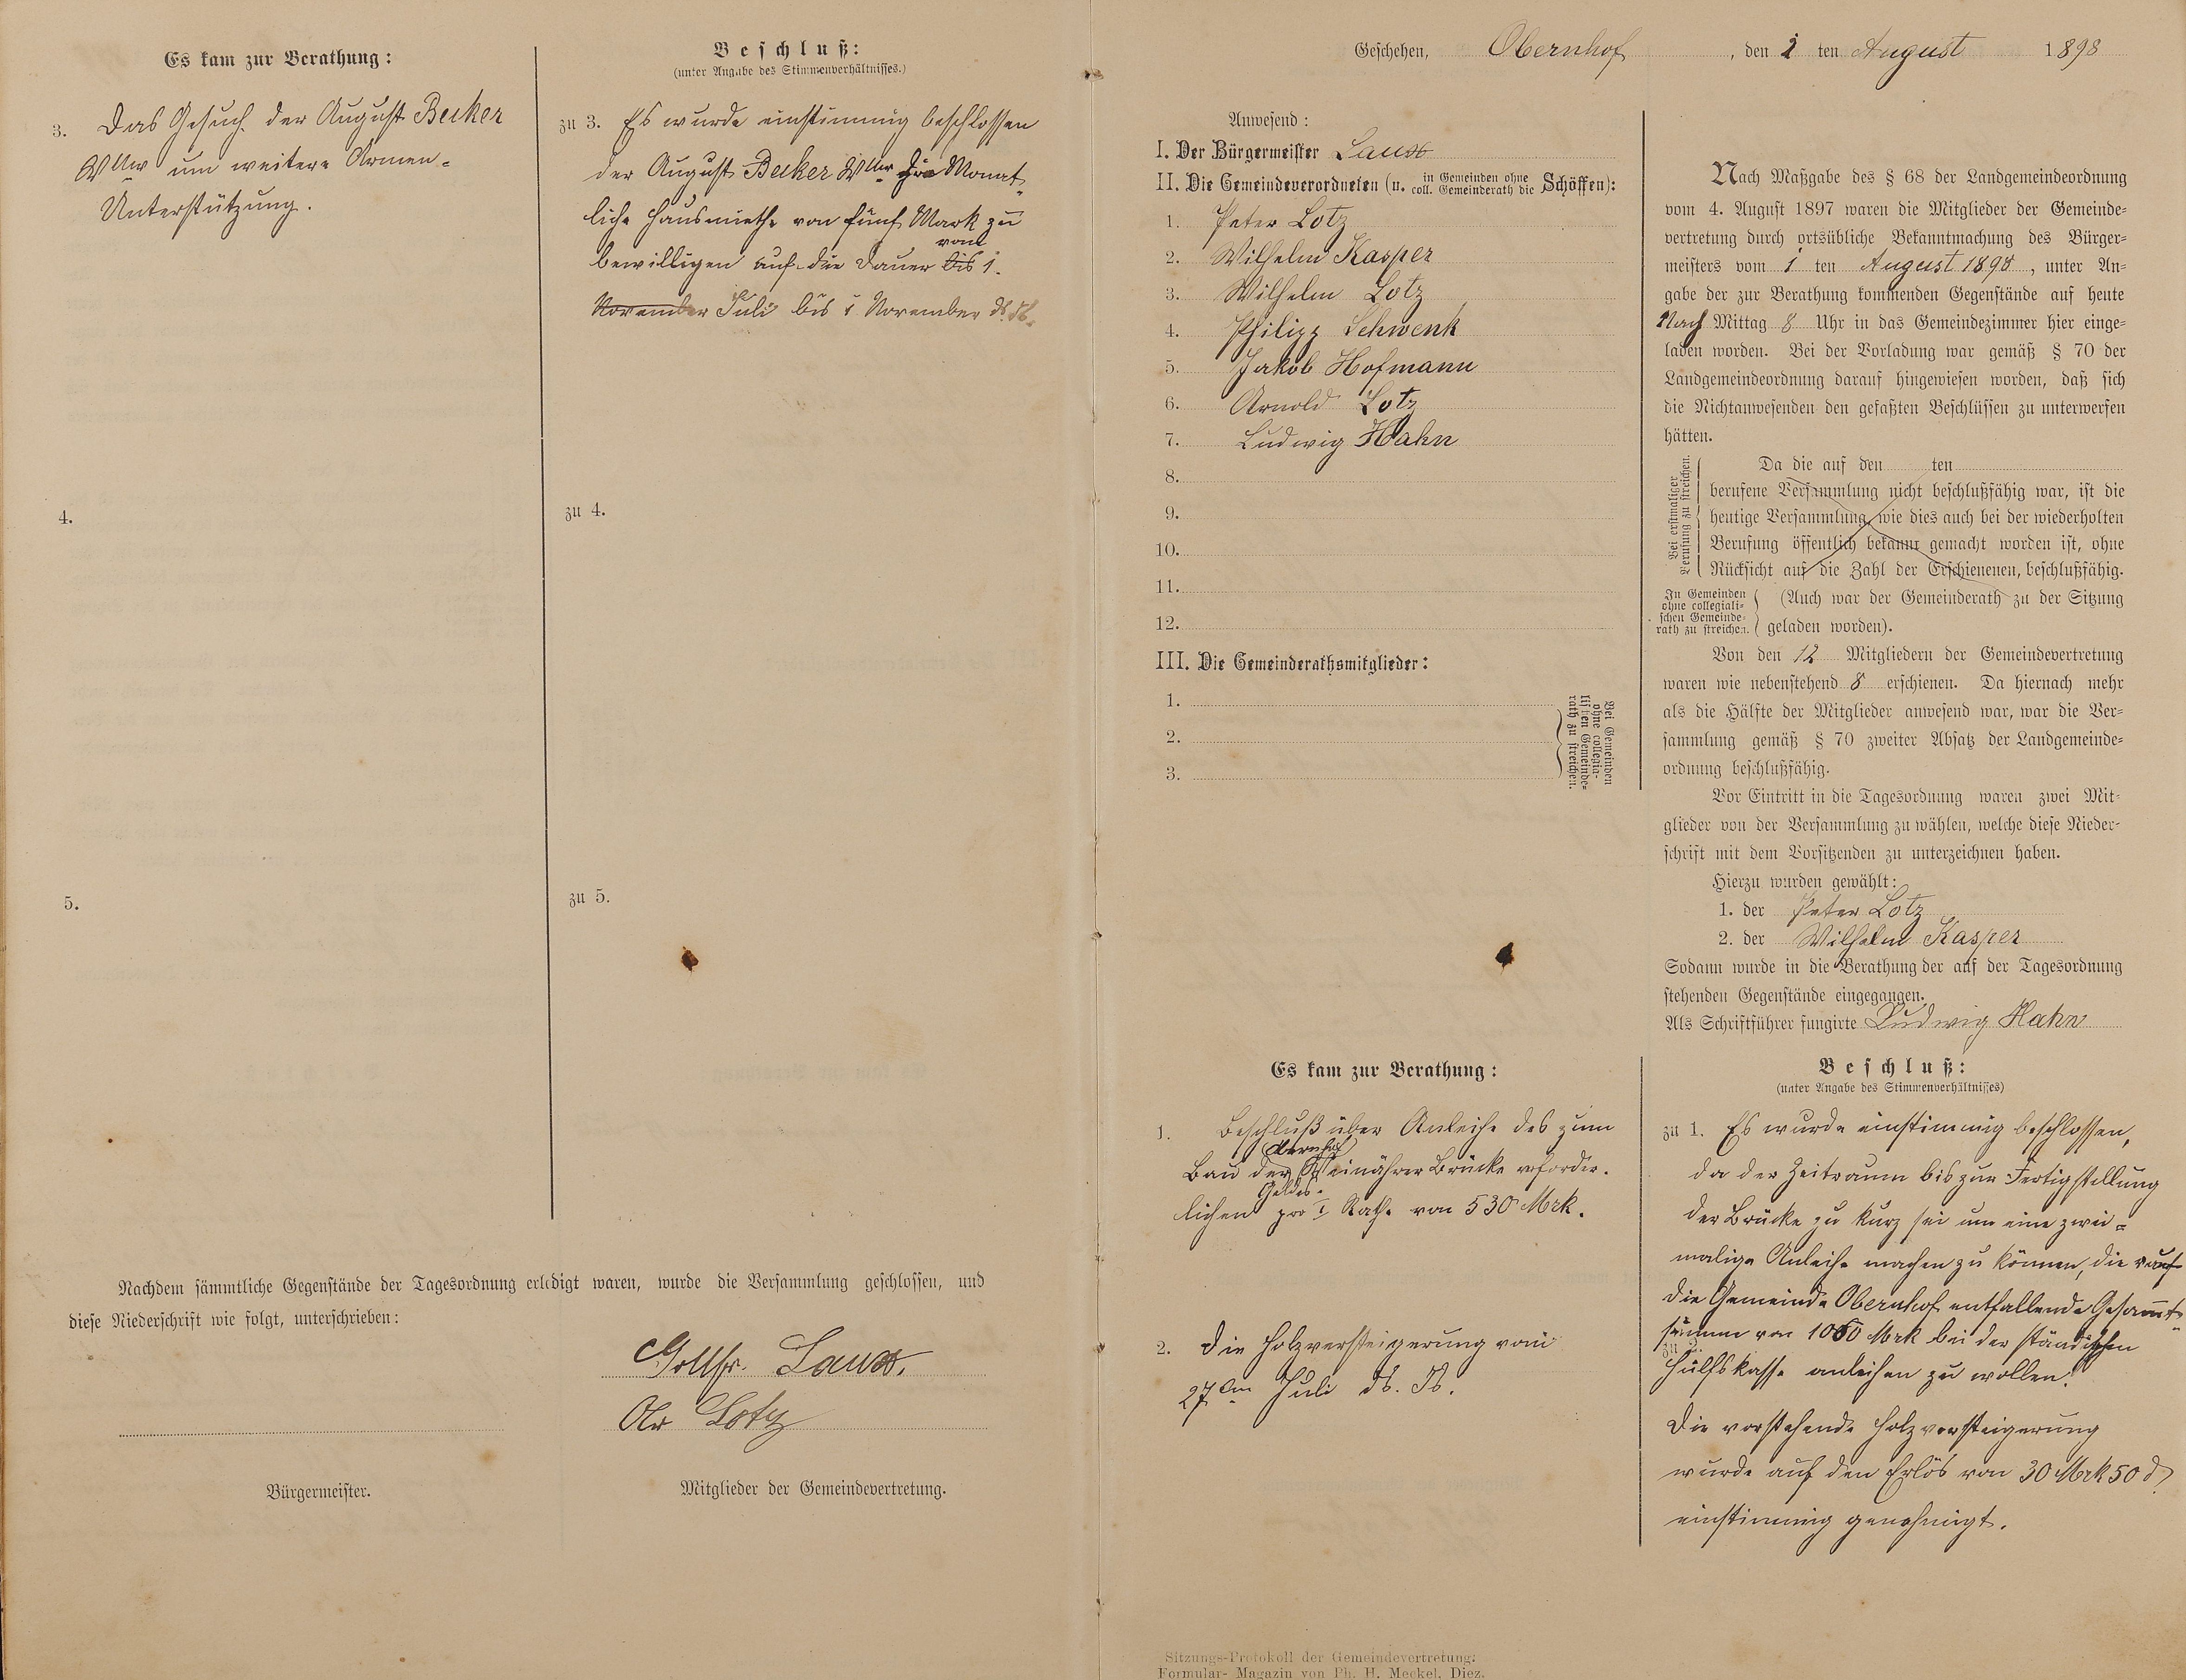 Es kam zur Berathung:
3. Das Gesuch der August Becker
Wttw um weitere Armen-
Unterstützung.
4.
5.
Beschluß:
(unter Angabe des Stimmenverhältnisses.)
zu 3. Es wurde einstimmig beschlossen
der August Becker Wttw die Monat-
liche Hausmiethe von fünf Mark zu
vom
bewilligen auf die Dauer bis 1.
November Juli bis 1 November ds. Js.
zu 4.
zu 5.
Nachdem sämmtliche Gegenstände der Tagesordnung erledigt waren, wurde die Versammlung geschlossen, und
diese Niederschrift wie folgt, unterschrieben:
Lotz
Bürgermeister.
Mitglieder der Gemeindevertretung.
Geschehen, Obernhof, den ten August 1898
Anwesend:
I. Der Bürgermeister
II. Die Gemeindeverordneten (u. in Gemeinden ohne coll. Gemeinderath die Schöffen):
1. Peter Lotz
2. Wilhelm Kasper
3. Wilhelm Lotz
4. Philipp Schwenk
5. Jakob Hofmann
6. Arnold Lotz
7. Ludwig Hahn
8.
9.
10.
11.
12.
III. Die Gemeinderathsmitglieder:
1.
2.
3.
Bei Gemeinden
ohne collegia-
lischen Gemeinde-
rath zu streichen.
Nach Maßgabe des § 68 der Landgemeindeordnung
vom 4. August 1897 waren die Mitglieder der Gemeinde-
vertretung durch ortsübliche Bekanntmachung des Bürger-
meisters vom 1 ten August 1898, unter An-
gabe der zur Berathung kommenden Gegenstände auf heute
Nach Mittag 8 Uhr in das Gemeindezimmer hier einge-
laden worden. Bei der Vorladung war gemäß § 70 der
Landgemeindeordnung darauf hingewiesen worden, daß sich
die Nichtanwesenden den gefaßten Beschlüssen zu unterwerfen
hätten.
Bei erstmaliger
Berufung zu streichen.
Da die auf den ten
berufene Versammlung nicht beschlußfähig war, ist die
heutige Versammlung, wie dies auch bei der wiederholten
Berufung öffentlich bekannt gemacht worden ist, ohne
Rücksicht auf die Zahl der Erschienenen, beschlußfähig.
In Gemeinden
ohne collegiali-
schen Gemeinde-
rath zu streichen.
(Auch war der Gemeinderath zu der Sitzung
geladen worden).
Von den 12 Mitgliedern der Gemeindevertretung
waren wie nebenstehend 8 erschienen. Da hiernach mehr
als die Hälfte der Mitglieder anwesend war, war die Ver-
sammlung gemäß § 70 zweiter Absatz der Landgemeinde-
ordnung beschlußfähig.
Vor Eintritt in die Tagesordnung waren zwei Mit-
glieder von der Versammlung zu wählen, welche diese Nieder-
schrift mit dem Vorsitzenden zu unterzeichnen haben.
Hierzu wurden gewählt:
1. der Peter Lotz
2. der Wilhelm Kasper
Sodann wurde in die Berathung der auf der Tagesordnung
stehenden Gegenstände eingegangen.
Als Schriftführer fungirte Ludwig Hahn
Es kam zur Berathung:
1. Beschluß über Anleihe des zum
Obernhof
Bau der Weinährer Brücke erforder-
Geldes.
lichen pro I Rathe von 530 Mrk.
2. Die Holzversteigerung vom
27ten Juli ds. Js.
Beschluß:
(unter Angabe des Stimmenverhältnisses)
zu 1. Es wurde einstimmig beschlossen,
da der Zeitraum bis zur Fertigstellung
der Brücke zu kurz sei um eine zwei-
malige Anleihe machen zu können, die auf
die Gemeinde Obernhof entfallende Gesammt-
summe von 1060 Mrk bei der ständischen
zu 2.
Hülfskasse anleihen zu wollen.
Die vorstehende Holzversteigerung
wurde auf den Erlös von 30 Mrk 50 d
einstimmig genehmigt.
Sitzungs-Protokoll der Gemeindevertretung:
Formular-Magazin von Ph. H. Meckel, Diez.